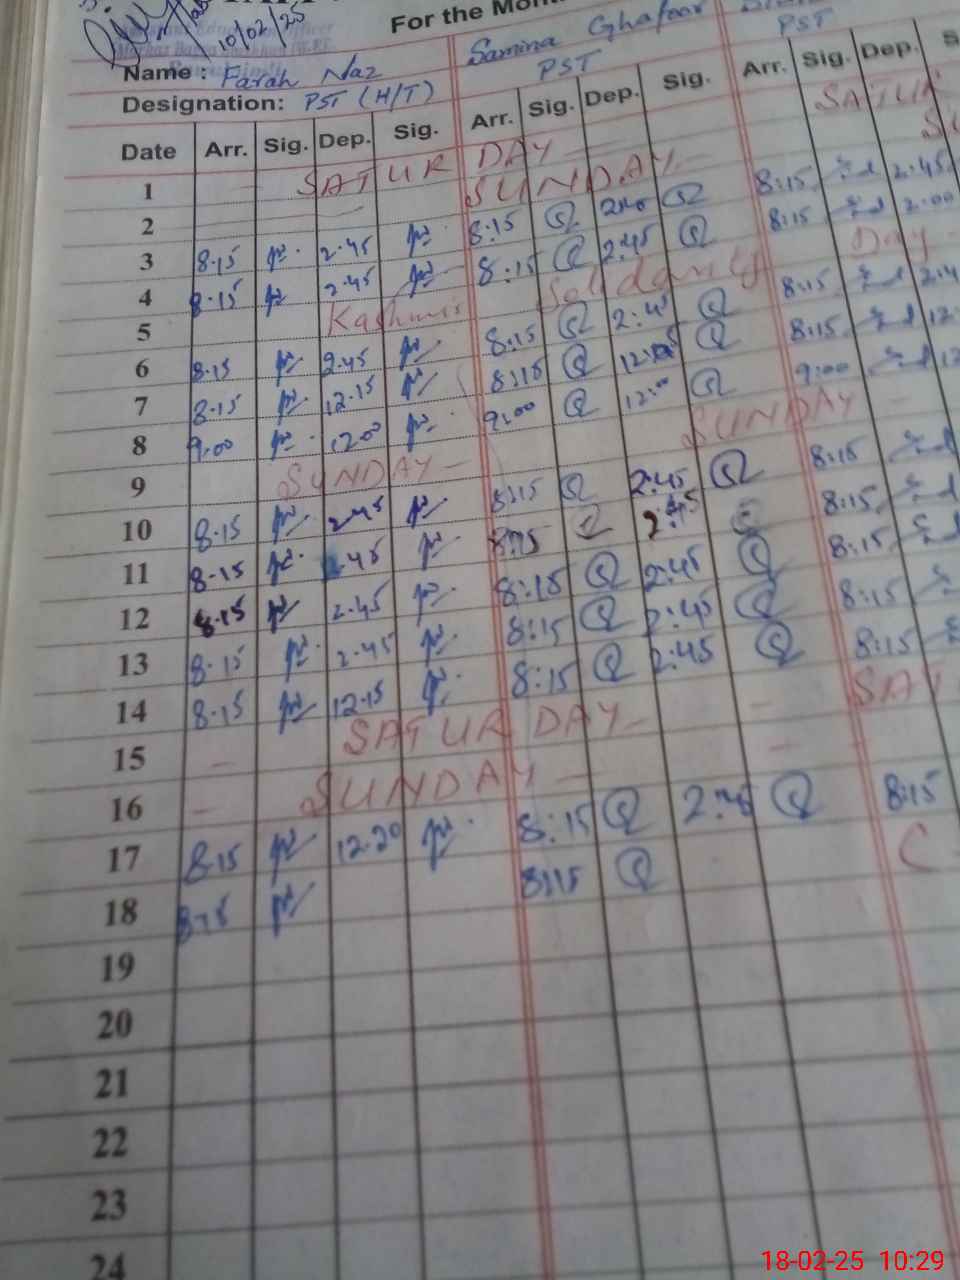 For the Mon
10/02/25
Name: Farah Naz Samina Ghafoor
Designation: PST (H/T) PST PST
Date Arr. Sig. Dep. Sig. Arr. Sig. Dep. Sig. Arr. Sig. Dep. S
1 SATUR DAY SATUR
2 SUNDAY SU
3 8.15 2.45 8:15 8:15 2.45
4 8.15 2.45 8:15 2:45 8:15 2.00
5 Kashmir Solidarity Day
6 8.15 2.45 8:15 2:45 8:15 2.4
7 8.15 12.15 8:15 8:15 12
8 9.00 1200 9:00 12:00 9:00 12
9 SUNDAY SUNDAY
10 8.15 2.45 8:15 2:45 8:15
11 8.15 .45 8:15 2:45 8:15
12 8.15 2.45 8:15 2:45 8:15
13 8.15 2.45 8:15 2:45 8:15
14 8.15 12.15 8:15 2:45 8:15
15 SATUR DAY SAT
16 SUNDAY
17 8.15 12.20 8:15 8:15
18 8.15 8:15 C
19
20
21
22
23
24
18-02-25 10:29